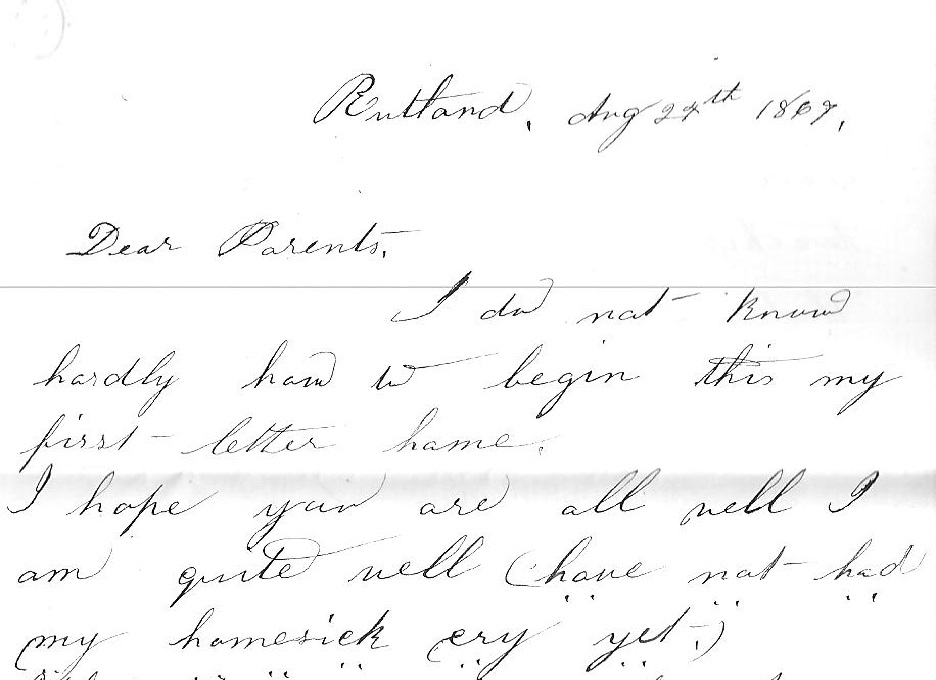 Rutland, Aug 27th 1867,
Dear Parents,
I do not know
hardly how to begin this my
first letter home.
I hope you are all well I
am quite well (have not had
my homesick cry yet.)